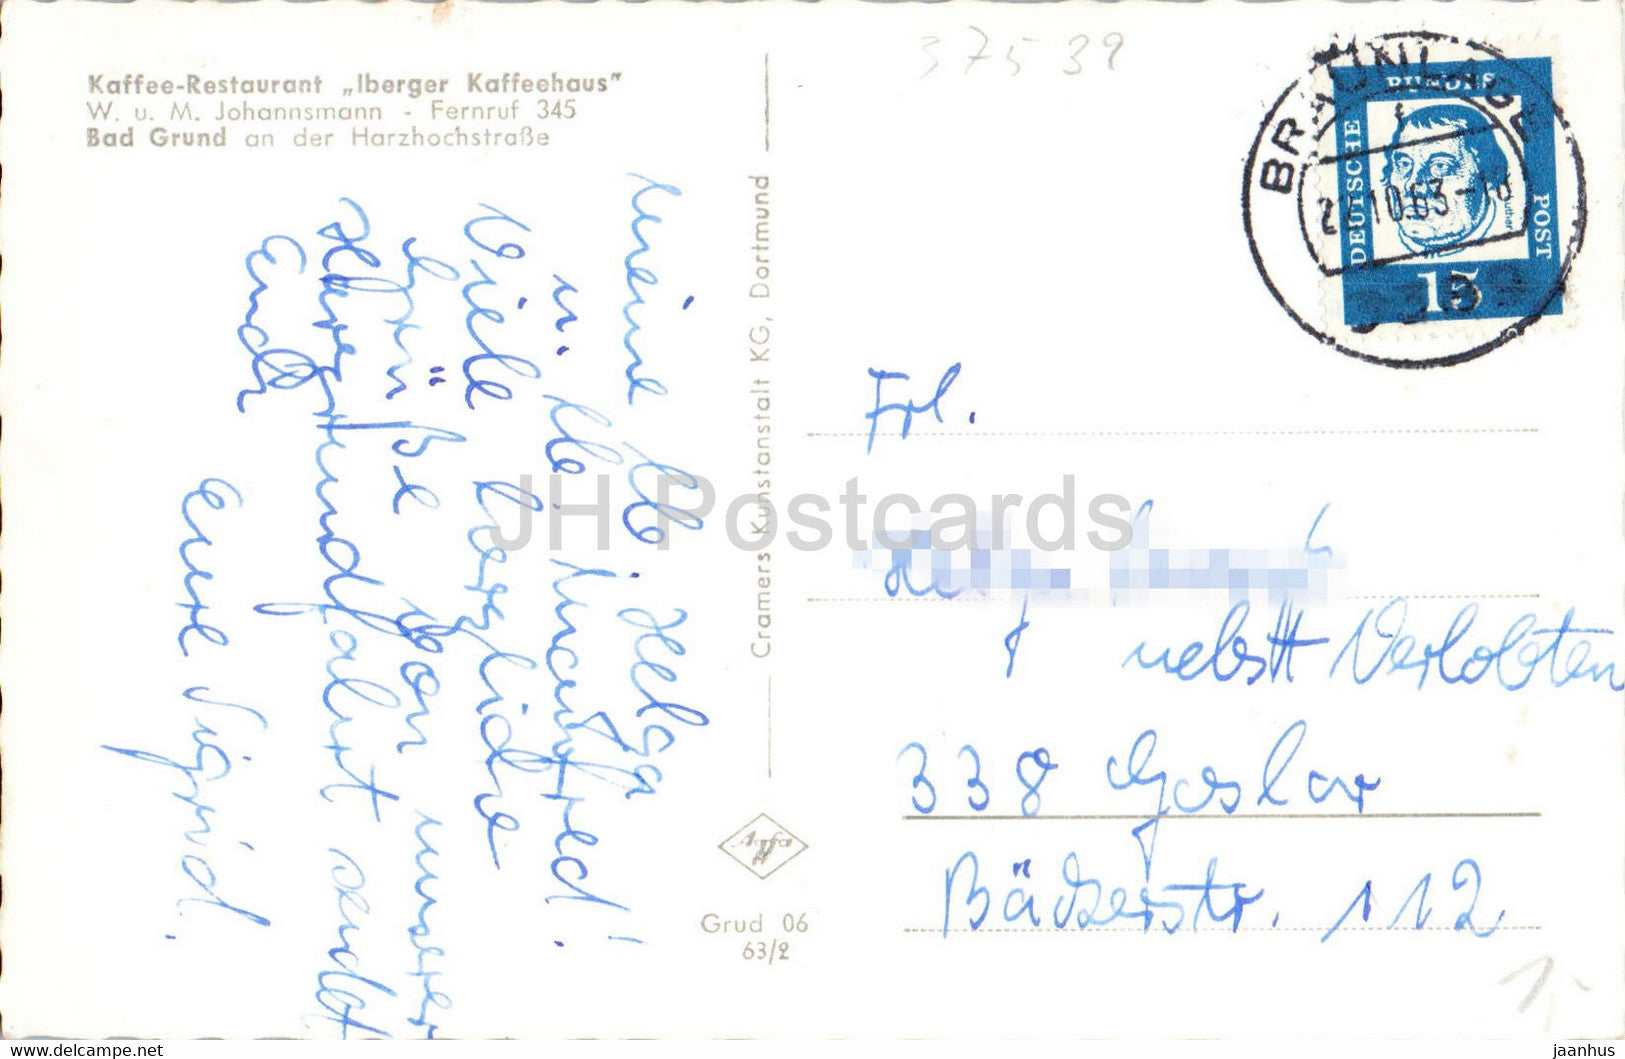 Kaffee-Restaurant „Iberger Kaffeehaus"
W. u. M. Johannsmann - Fernruf 345
Bad Grund an der Harzhochstraße
Meine lb. Helga
u. lb. Manfred!
Viele herzliche
Grüße von unserer
Herbstfahrt sendet
Euch
Eure Sigrid.
Cramers Kunstanstalt KG, Dortmund
Agfa
Grud 06
63/2
37539
BRAUNLAGE
f
22.10.63-18
DEUTSCHE
BUNDES
POST
Luther
15
Frl.
nebst Verlobten
338 Goslar
Bäckerstr. 112
1.-
JH Postcards
www.delcampe.net
jaanhus